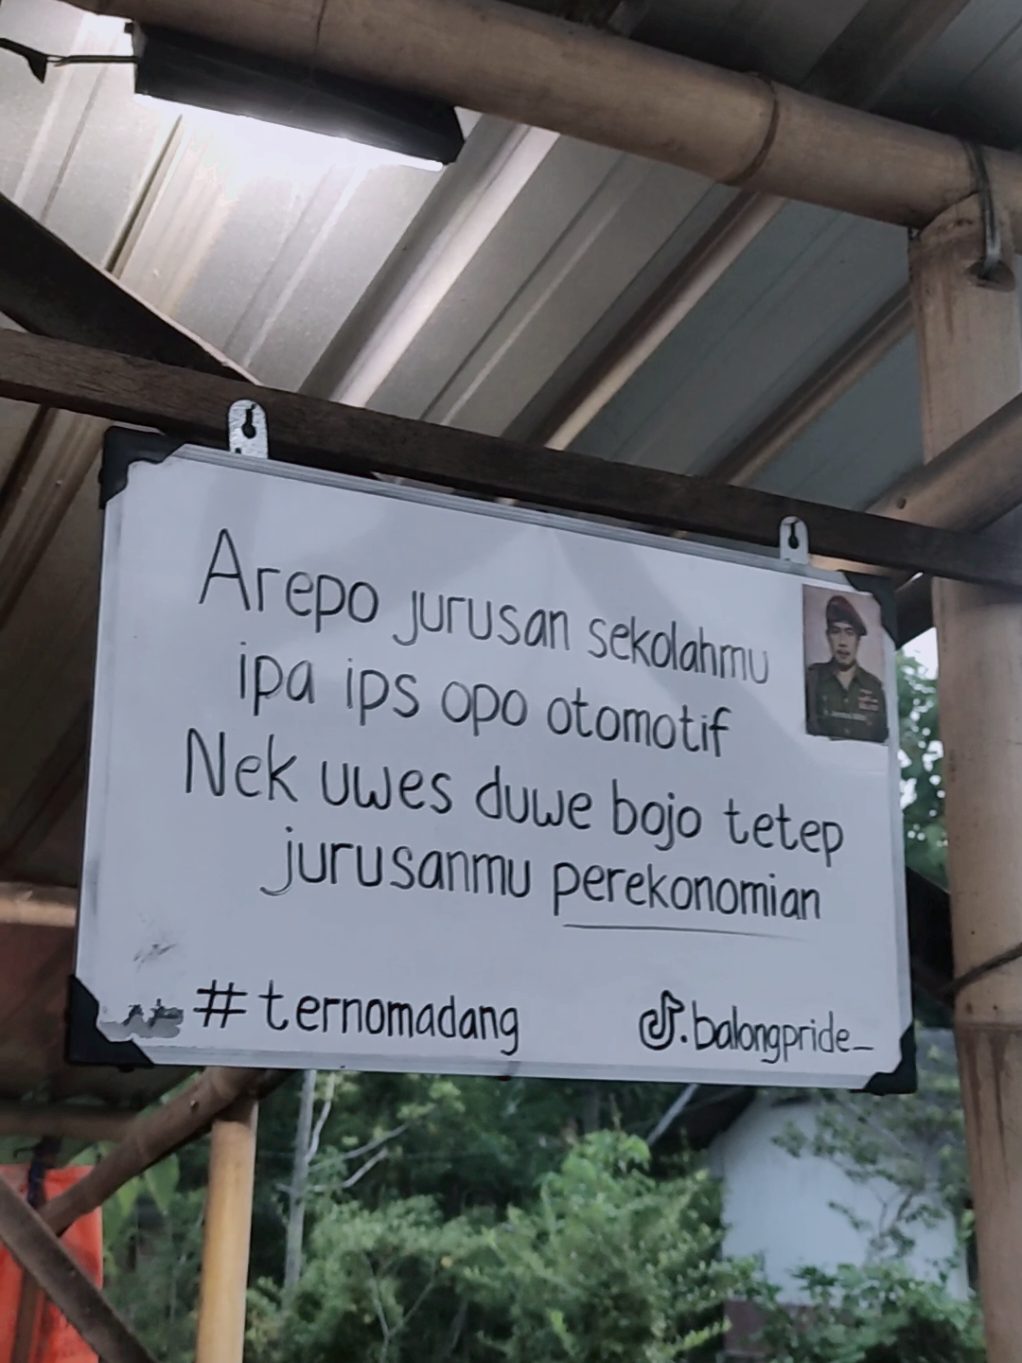 Arepo jurusan sekolahmu
ipa ips opo otomotif
Nek uwes duwe bojo tetep
jurusanmu perekonomian
#ternomadang
.balongpride_